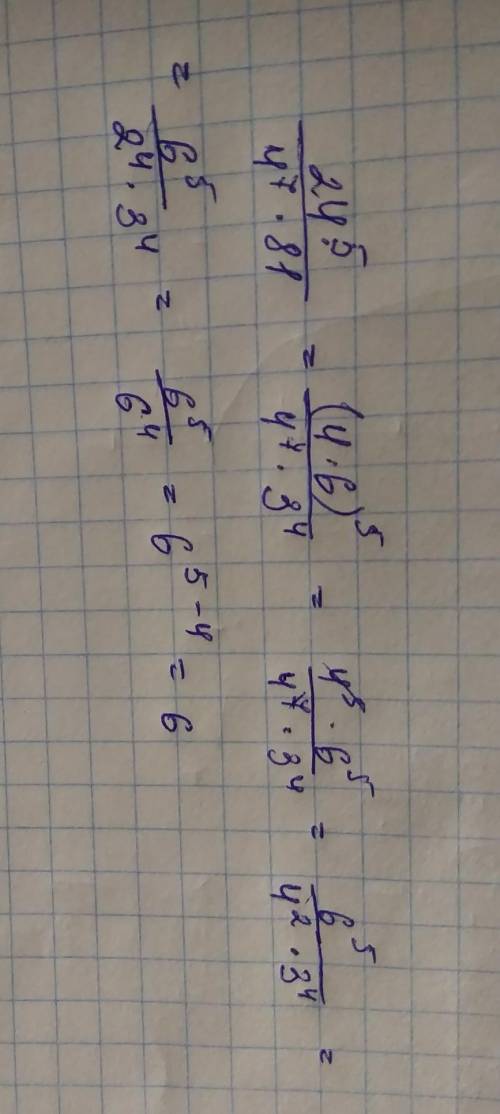 24⁵ / (4⁷ · 81) = (4·6)⁵ / (4⁷ · 3⁴) = 4⁵ · 6⁵ / (4⁷ · 3⁴) = 6⁵ / (4² · 3⁴) =
= 6⁵ / (2⁴ · 3⁴) = 6⁵ / 6⁴ = 6⁵⁻⁴ = 6